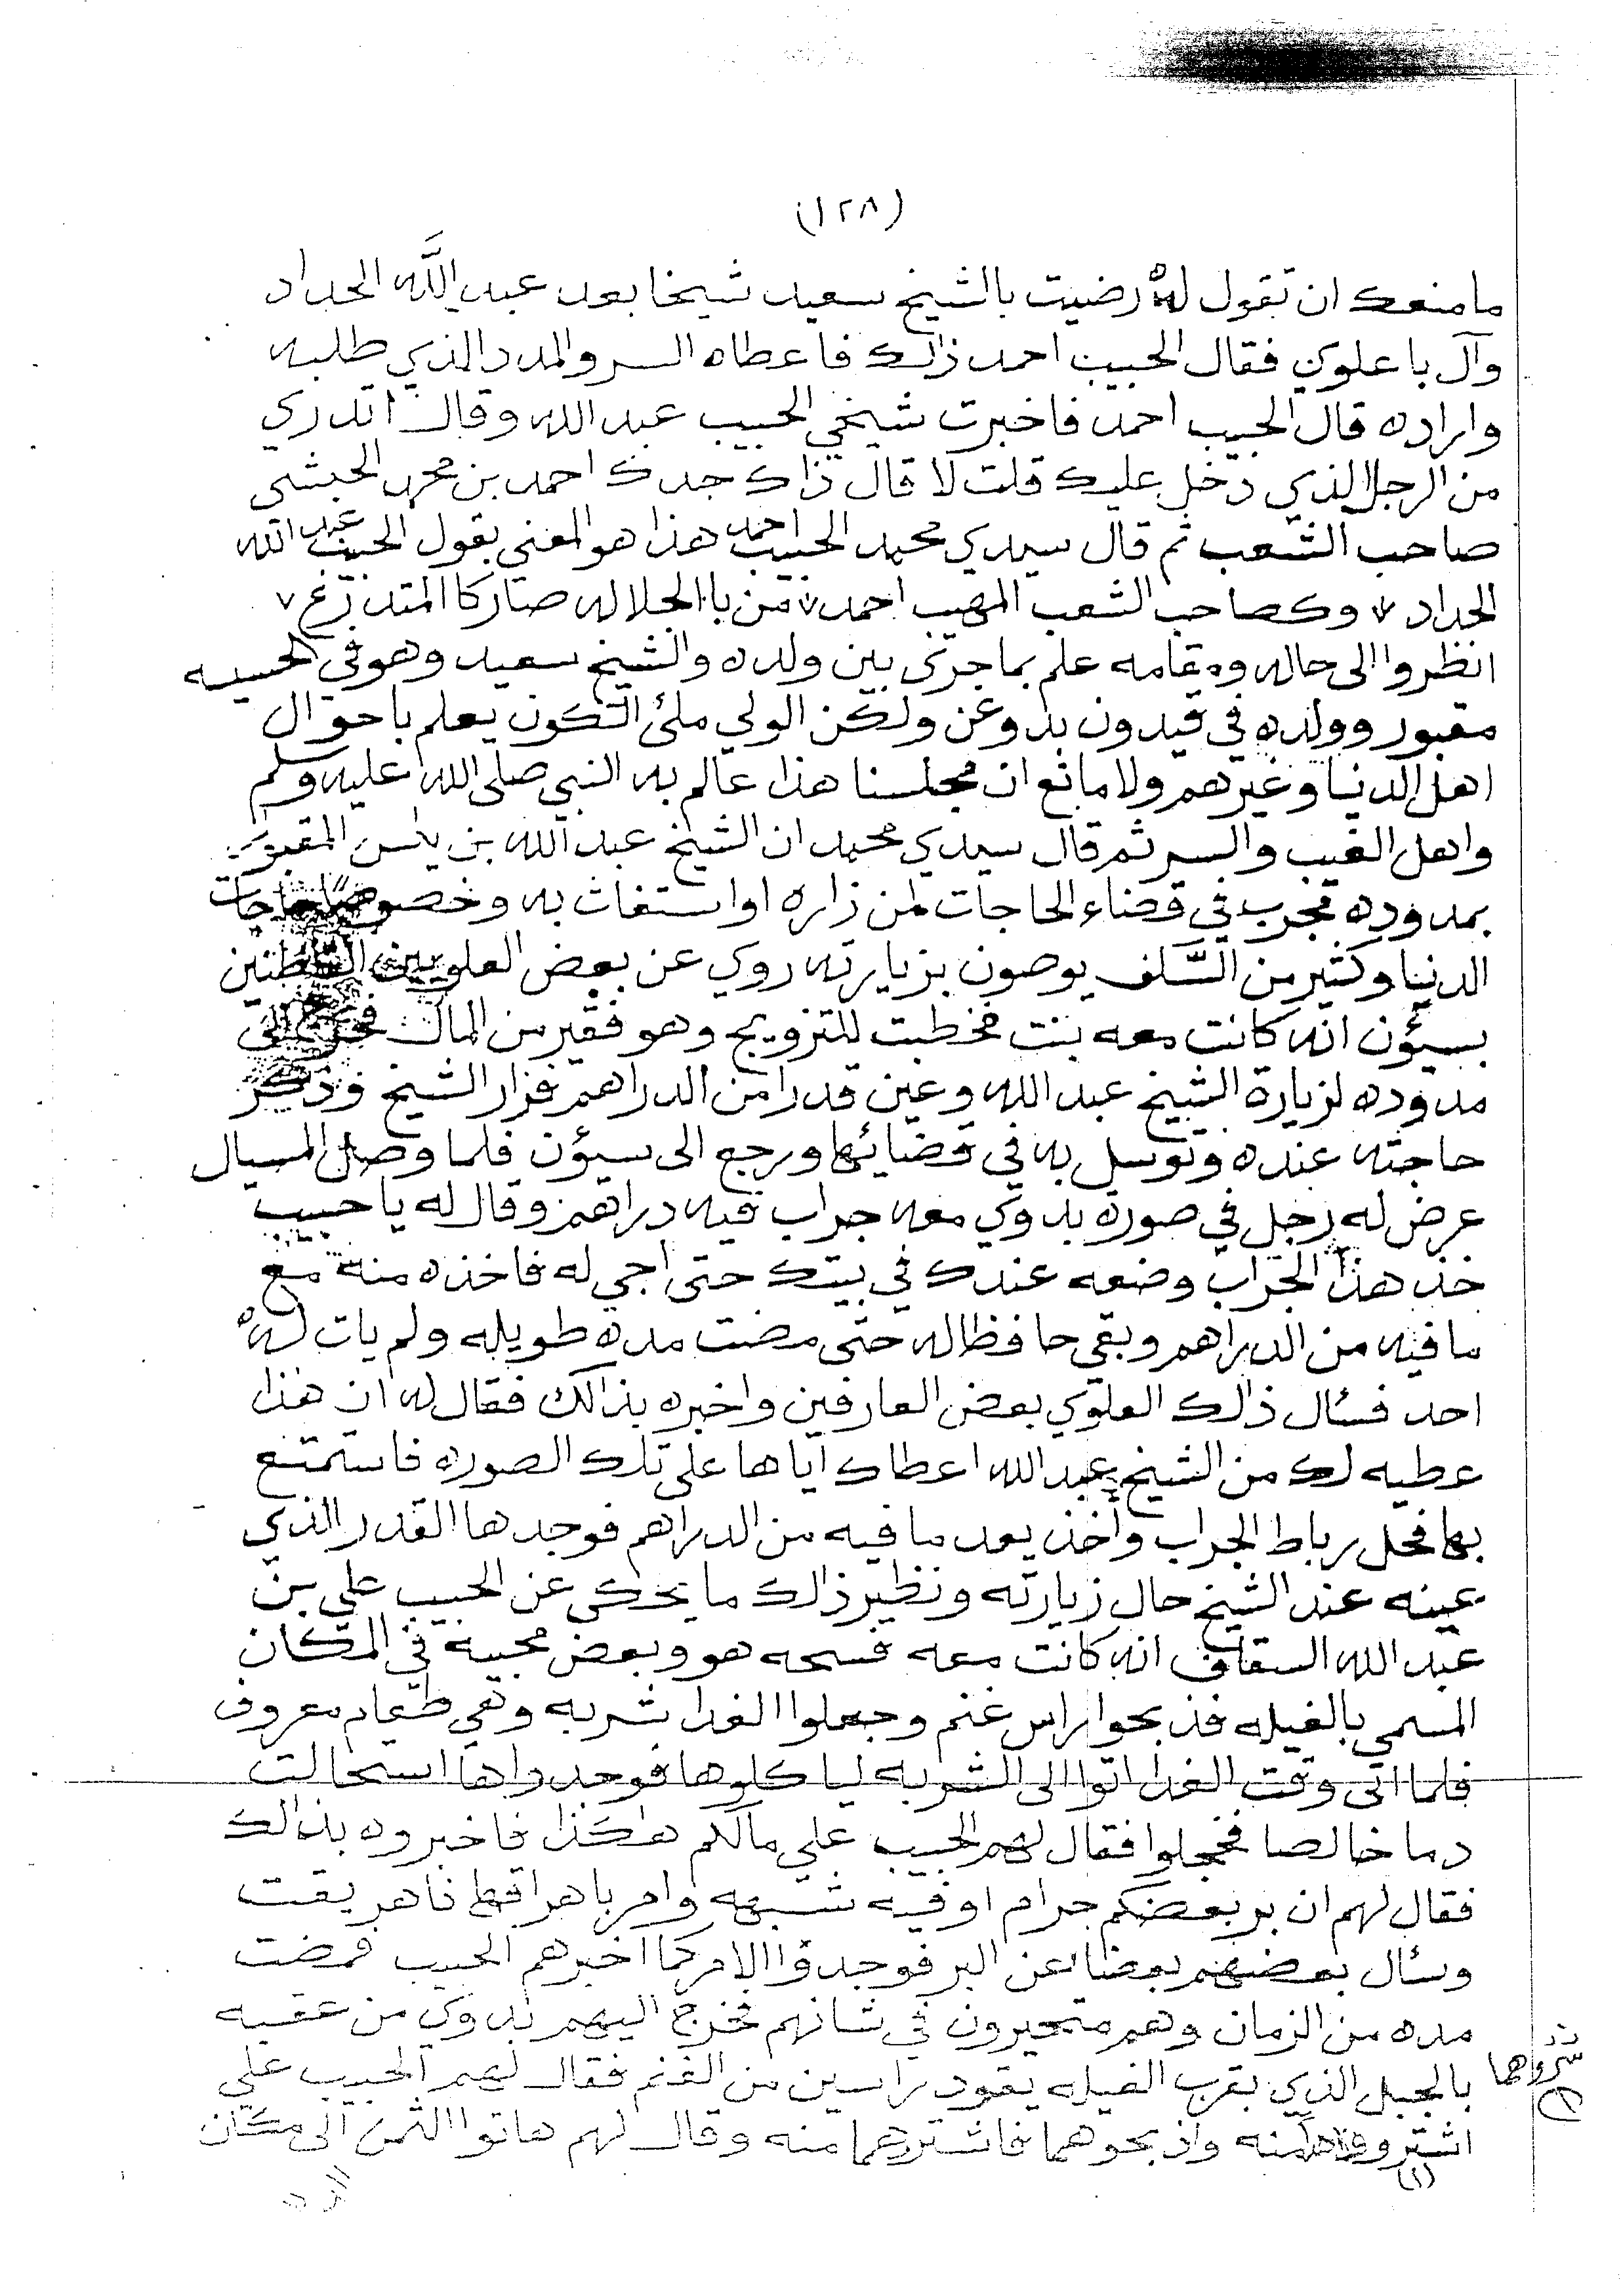 (١٢٨)
ما منعك ان تقول له رضيت بالشيخ سعيد شيخا بعد عبد اللَّه الحداد
وآل با علوي فقال الحبيب احمد ذالك فاعطاه السر والمدد الذي طلبه
واراده قال الحبيب احمد فاخبرت شيخي الحبيب عبد الله وقال اتدري
من الرجل الذي دخل عليك قلت لا قال ذاك جدك احمد بن محمد الحبشي
صاحب الشعب ثم قال سيدي محمد الحبيب احمد هذا هو المعني بقول الحبيب عبد الله
الحداد ٧ وكصاحب الشعب المهيب احمد ٧ من با الجلاله صار كا المتدرع ٧
انظروا الى حاله ومقامه علم بما جرى بين ولده والشيخ سعيد وهو في الحسيسه
مقبور وولده في قيدون بدوعن ولكن الولي ملئ الكون يعلم باحوال
اهل الدنيا وغيرهم ولا مانع ان مجلسنا هذا عالم به النبي صلى الله عليه وسلم
واهل الغيب والسر ثم قال سيدي محمد ان الشيخ عبد الله بن يس المقبور
بمدوده مجرب في قضاء الحاجات لمن زاره او استغاث به وخصوصًا حاجات
الدنيا وكثير من السَّلف يوصون بزيارته روي عن بعض العلويين القاطنين
بسيؤن انه كانت معه بنت فخطبت للتزويج وهو فقير من المال فخرج الى
مدوده لزيارة الشيخ عبد الله وعين قدرا من الدراهم فزار الشيخ وذكر
حاجته عنده وتوسل به في قضائها ورجع الى سيؤن فلما وصل المسيال
عرض له رجل في صورة بدوي معه جراب فيه دراهم وقال له يا حبيب
خذ هذا الجراب وضعه عندك في بيتك حتى اجي له فاخذه منه مع
ما فيه من الدراهم وبقي حافظا له حتى مضت مده طويله ولم يات له
احد فسئال ذالك العلوي بعض العارفين واخبره بذالك فقال له ان هذا
عطيه لك من الشيخ عبد الله اعطاك اياها على تلك الصوره فاستمتع
بها فحل رباط الجراب وأخذ يعد ما فيه من الدراهم فوجدها القدر الذي
عينه عند الشيخ حال زيارته ونظير ذالك ما يحكى عن الحبيب علي بن
عبد الله السقاف انه كانت معه فسحه هو وبعض محبيه في المكان
المسمى بالغيله فذبحوا راس غنم وجعلوا الغدا شربه وهي طعام معروف
فلما اتى وقت الغدا اتوا الى الشربه لياكلوها فوجدواها استحالت
دما خالصا فخجلوا فقال لهم الحبيب علي مالكم هكذا فاخبروه بذالك
فقال لهم ان بر بعضكم حرام او فيه شبهه وامر باهراقها فاهريقت
وسئال بعضهم بعضا عن البر فوجدوا الامر كما اخبرهم الحبيب فمضت
مده من الزمان وهم متحيرون في شانهم فخرج اليهم بدوي من عقبه
بالجبل الذي بقرب الغيله يقود راسين من الغنم فقال لهم الحبيب علي
اشتروهما منه واذبحوهما فاشتروهما منه وقال لهم هاتوا الثمن الى مكان
(١)